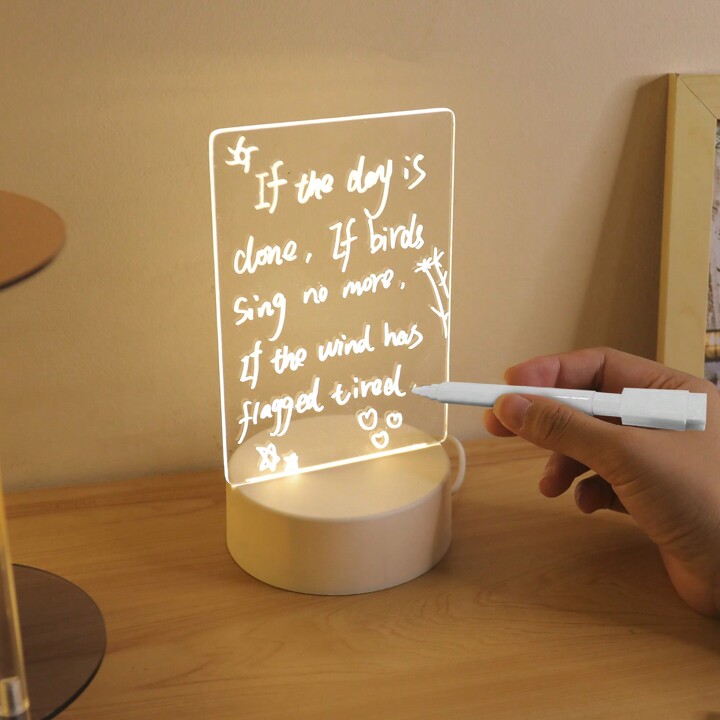 If the day is
done, If birds
sing no more.
If the wind has
flagged tired.